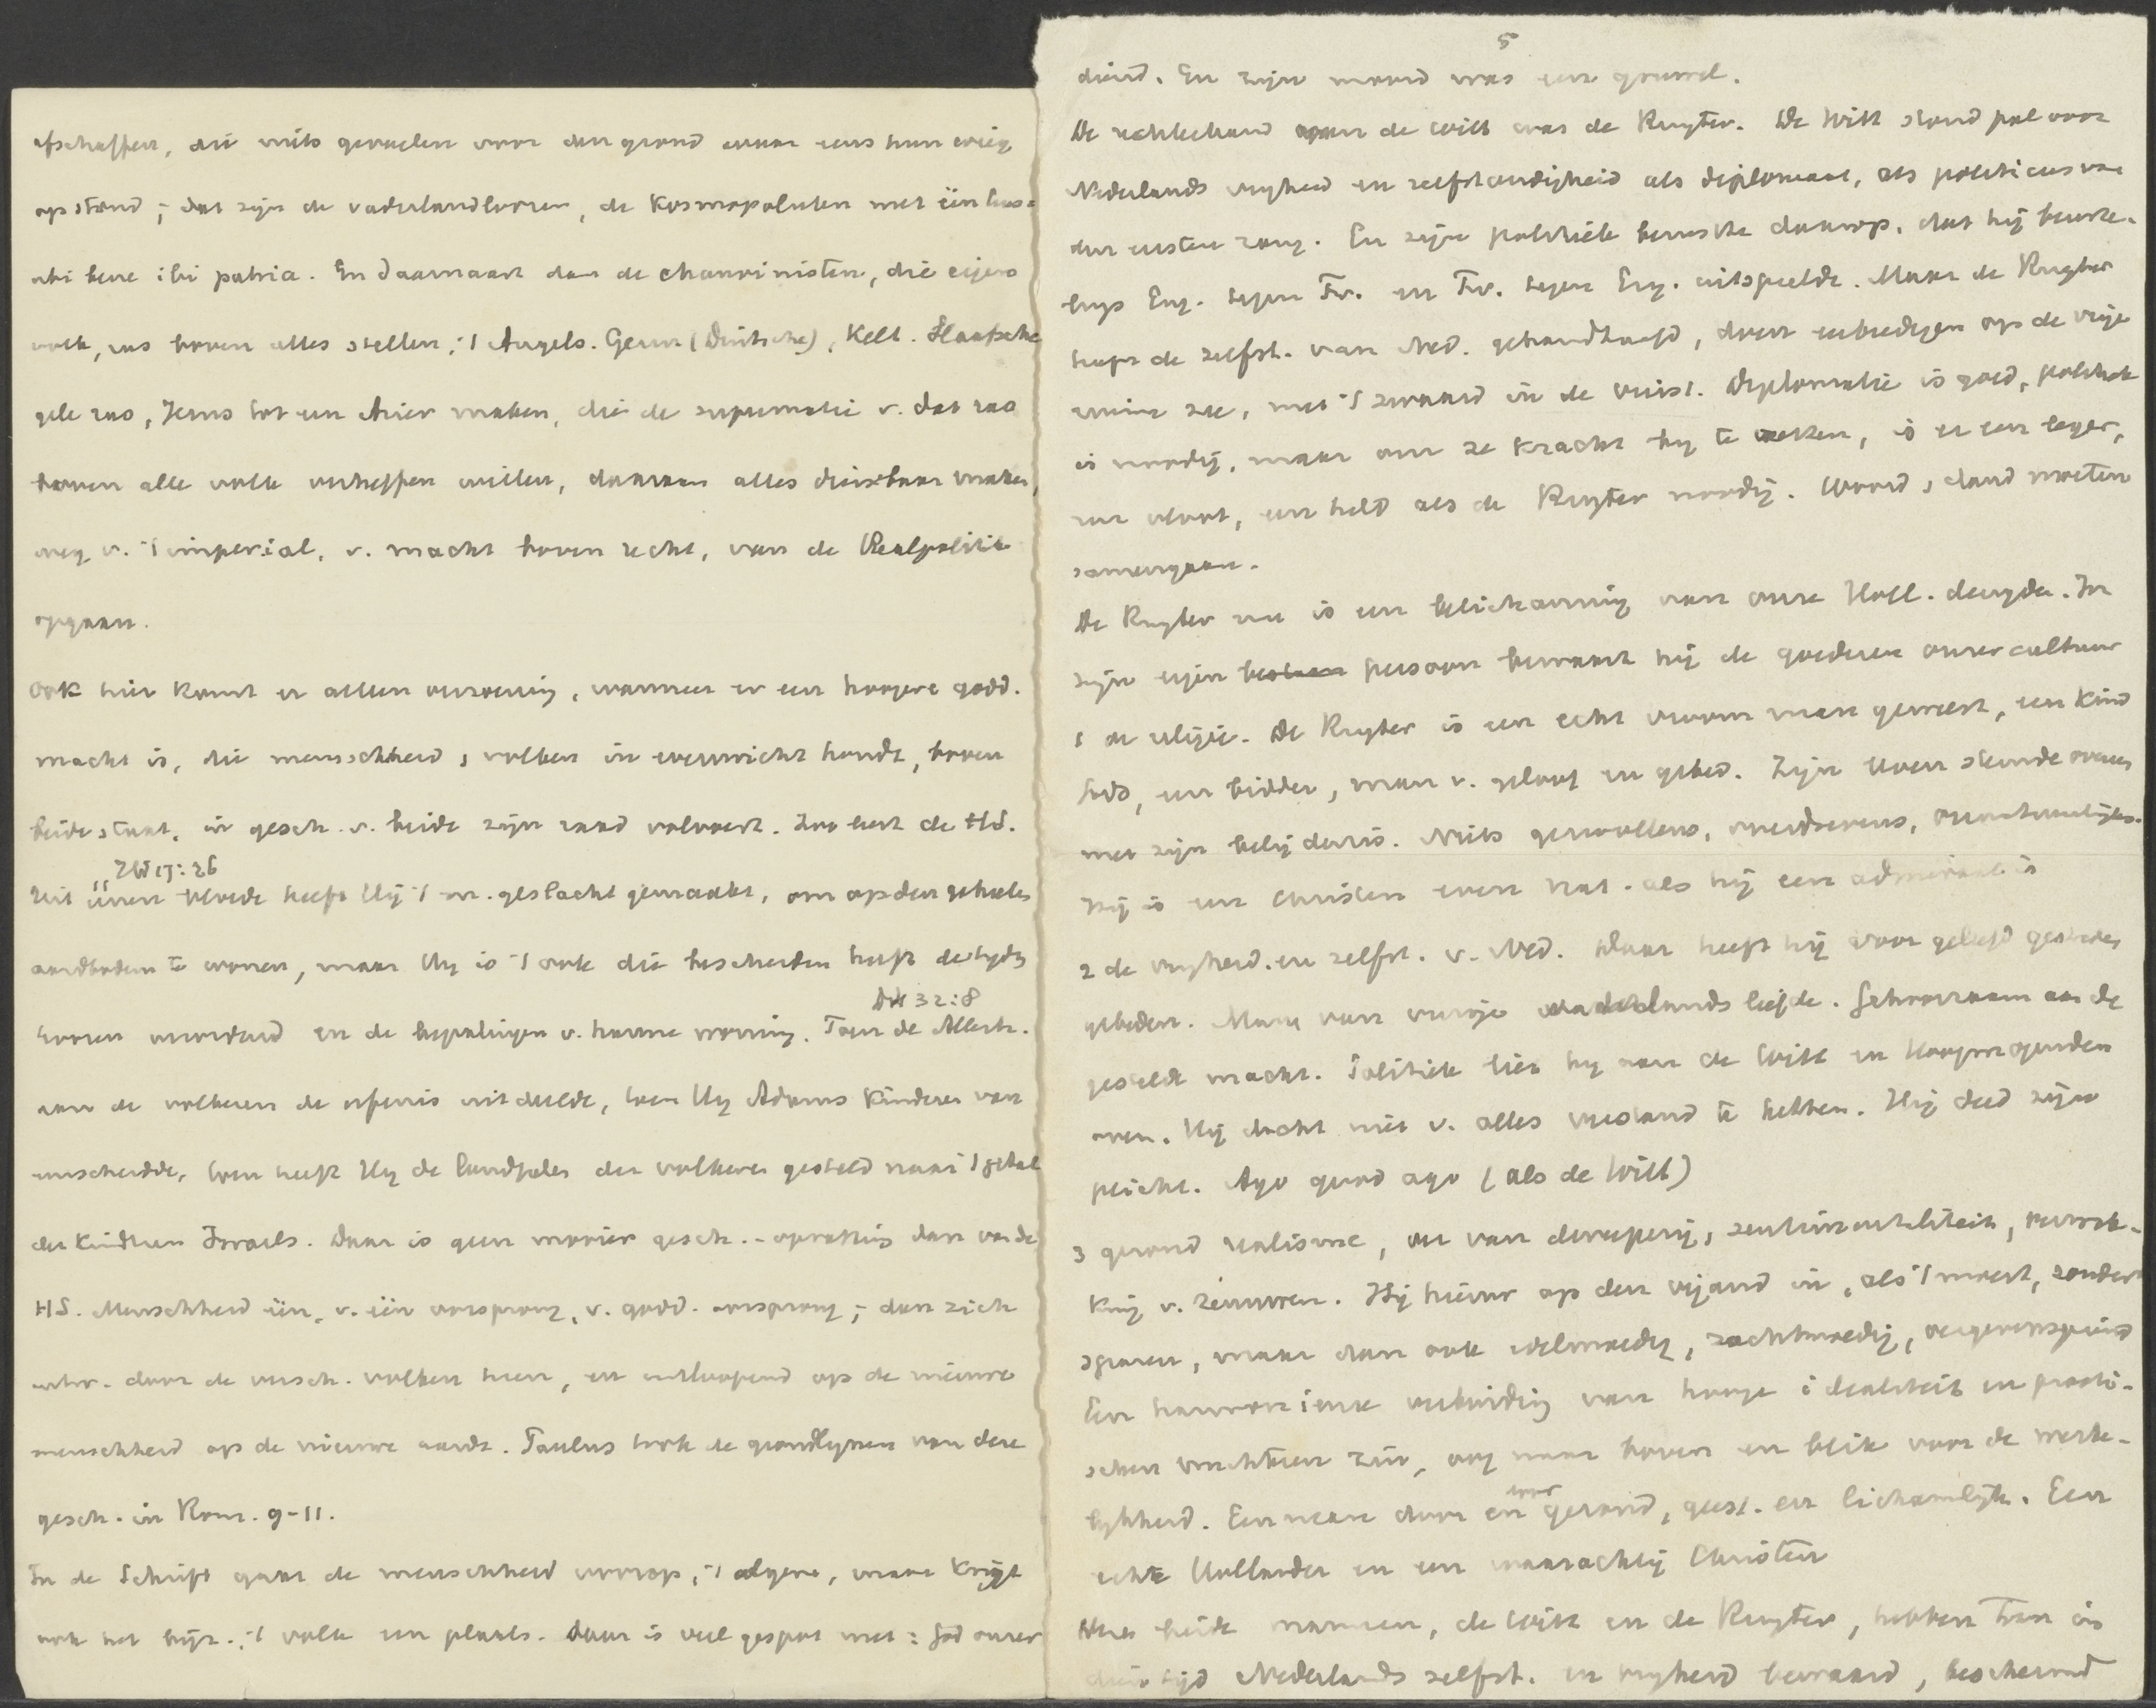 afschaffen, die niets gevoelen voor den grond waar eens hun wieg
opstond; dat zijn de vaderlandloozen, de Kosmopolieten met één leus:
ubi bene ibi patria. En daarnaast dan de chauvinisten, die eigen
volk, ras boven alles stellen; 't Angels. Germ (Duitsche), Kelt. Slaafsche
gele ras, Jezus tot een Ariër maken, die de suprematie v. dat ras
boven alle volk verheffen willen, daaraan alles dienstbaar maken,
weg v. 't imperial. v. macht boven recht, van de Realpolitik
opgaan.
Ook hier komt er alleen verzoening, wanneer er een hoogere godd.
macht is, die menschheid, volken in evenwicht houdt, boven
beide staat, in gesch. v. beide zijn raad volvoert. Zoo leert de HS.
Hd 17:26
Uit éénen bloede heeft Hij 't m. geslacht gemaakt, om op den geheelen
aardbodem te wonen, maar Hij is 't ook die bescheiden heeft de tijden
te voren verordend en de bepalingen v. hunne woning. Toen de Allerh.
Dt 32:8
aan de volkeren de erfenis uitdeelde, toen Hij Adams Kinderen van
eenscheidde, toen heeft Hij de landpalen der volkeren gesteld naar 't getal
der Kinderen Israels. Daar is geen mooier gesch.-opvatting dan van de
HS. Menschheid één, v. één oorsprong, v. godd. oorsprong; dan zich
door de versch. volken heen, en uitloopend op de nieuwe
menschheid op de nieuwe aarde. Paulus trok de grondlijnen van deze
gesch. in Rom. 9-11.
In de Schrift gaat de menschheid voorop, 't algem., maar Krijgt
ook het bijz., 't volk een plaats. Daar is veel gespot met: God onzer
5
diend. En zijn moord was een gruwel.
De rechterhand van de Witt was de Ruyter. De Witt stond pal voor
Nederlands vrijheid en zelfstandigheid als diplomaat, als politicus van
den eersten rang. En zijn politiek berustte daarop, dat hij beurte-
lings Eng. tegen Fr. en Fr. tegen Eng. uitspeelde. Maar de Ruyter
heeft de zelfst. van Ned. gehandhaafd, doen eerbiedigen op de vrije
ruime zee, met 't zwaard in de vuist. Diplomatie is goed, politiek
is noodig, maar om ze kracht bij te zetten, is er een leger,
een vloot, een held als de Ruyter noodig. Woord, daad moeten
samengaan.
De Ruyter nu is een belichaming van onze Holl. deugden. In
zijn eigen persoon bewaart hij de goederen onzer cultuur
1 de religie. De Ruyter is een echt vroom man geweest, een Kind
Gods, een bidder, man v. geloof en gebed. Zijn leven stemde overeen
met zijn belijdenis. Niets gewrongens, onaantrekkelijks.
Hij is een Christen even nat. als hij een admiraal is
2 de vrijheid en zelfst. v. Ned. Daar heeft hij voor geleefd gestreden
gebeden. Man van vurige vaderlandsliefde. Gehoorzaam aan de
gestelde macht. Politiek liet hij aan de Witt en Hoogmogenden
over. Hij dacht niet v. alles verstand te hebben. Hij deed zijn
plicht. Ago quod ago (als de Witt)
3 gezond realisme, ver van dweeperij, sentimentaliteit, overwer-
king v. zenuwen. Hij hieuw op den vijand in, als 't moest, zonder
sparen, maar dan ook edelmoedig, zachtmoedig,
Een harmonieuse verbinding van hooge idealiteit en practi-
schen nuchteren zin, oog naar boven en blik voor de werke-
lijkheid. Een man door en door gezond, geest. en lichamelijk. Een
echte Hollander en een waarachtig Christen
Deze beide mannen, de Witt en de Ruyter, hebben toen in
dien tijd Nederlands zelfst. en vrijheid bewaard, beschermd